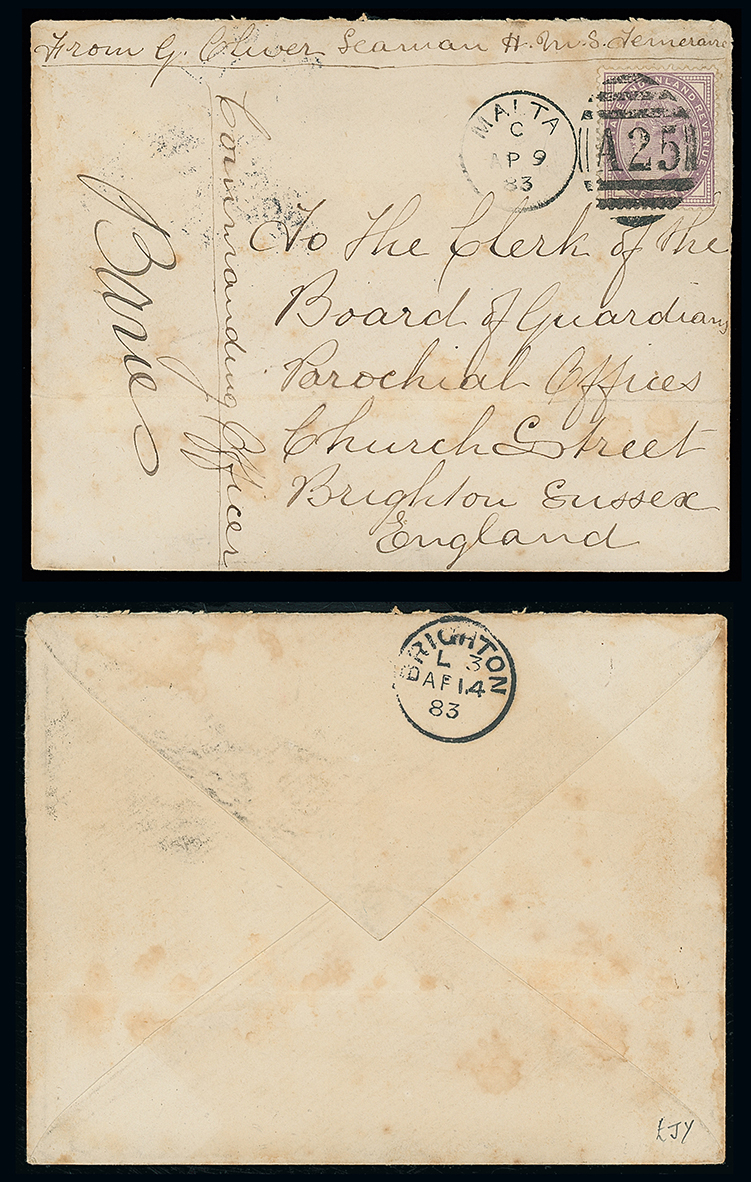 From G. Oliver Seaman H.M.S. Temeraire
MALTA
C
AP 9
83
A25
INLAND REVENUE
Commanding Officer
To The Clerk of the
Board of Guardians
Parochial Offices
Church Street
Brighton Sussex
England
BRIGHTON
L 3
AP 14
83